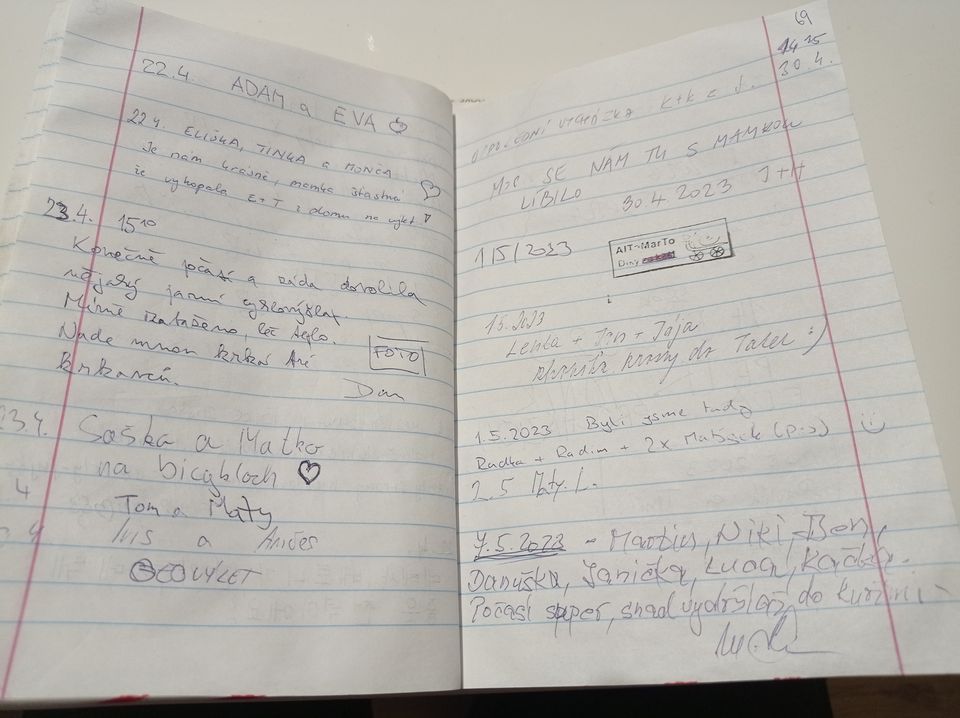 22.4. ADAM a EVA
22.4. ELIŠKA, TINKA a MONČA
Je nám krásně, mamka šťastná
že vykopala E+T z domu na výlet
23.4. 15¹⁰
Konečně počasí a záda dovolila
nějaký jarní
Mírně zataženo, leč teplo.
Nade mnou krká
krkavců.
FOTO
Dan
23.4. Saška a Matko
na bicykloch
4
Tom a Maty
a
GEOVÝLET
69
14 15
30.4.
K+K z J.
MOC SE NÁM TU S MAMKOU
LÍBILO 30.4.2023 J+H
1/5/2023
AIT-MarTo
Diny
1.5.2023
Lenka + Jan + Jája
do Talek :)
1.5.2023 Byli jsme tady
Radka + Radim + 2x Mařísek (p.s)
2.5 Maty. L.
7.5.2023 - Martin, Niki, Ben,
Danuška, Janička, Luca, Kačka.
Počasí super, snad vydržíš do Kuřimi -